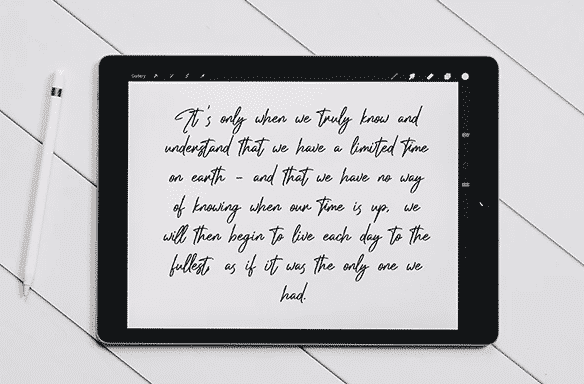 Gallery
It's only when we truly know and
understand that we have a limited time
on earth - and that we have no way
of knowing when our time is up, we
will then begin to live each day to the
fullest, as if it was the only one we
had.